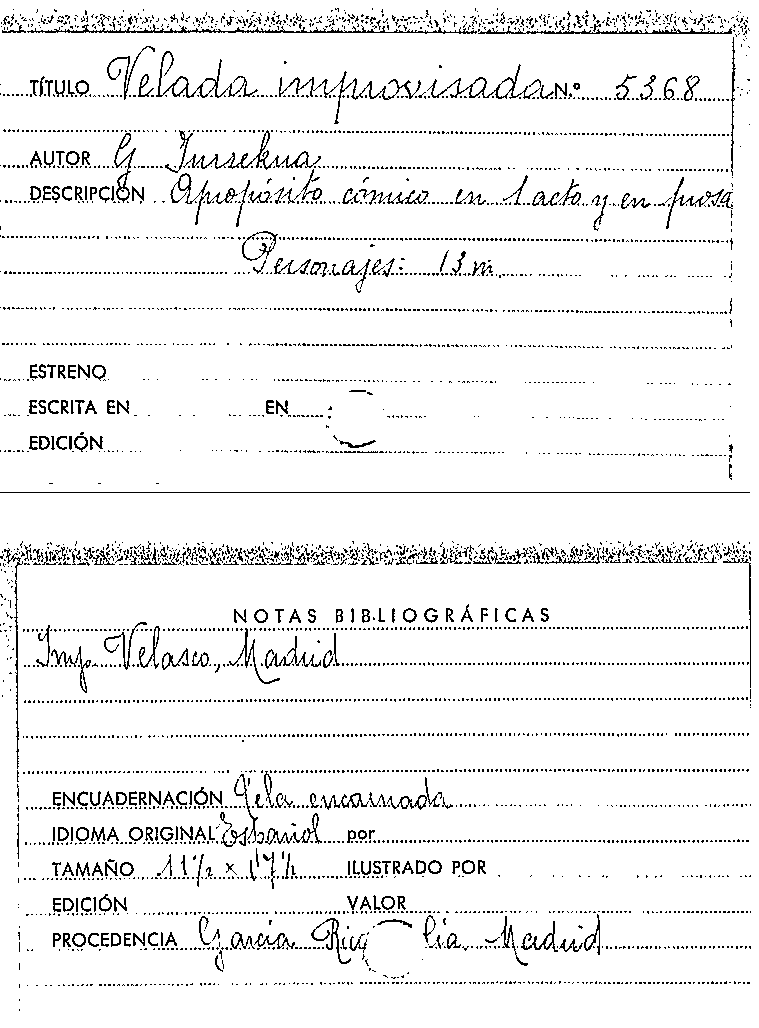 TÍTULO Velada improvisada N.º 5368
AUTOR G
DESCRIPCIÓN Apropósito cómico en 1 acto y en prosa
Personajes: 13 m.
ESTRENO
ESCRITA EN EN
EDICIÓN
NOTAS BIBLIOGRÁFICAS
Imp. Velasco, Madrid
ENCUADERNACIÓN Tela encarnada
IDIOMA ORIGINAL Español por
TAMAÑO 11 1/2 x 17 1/2 ILUSTRADO POR
EDICIÓN VALOR
PROCEDENCIA García Rico Cía. Madrid